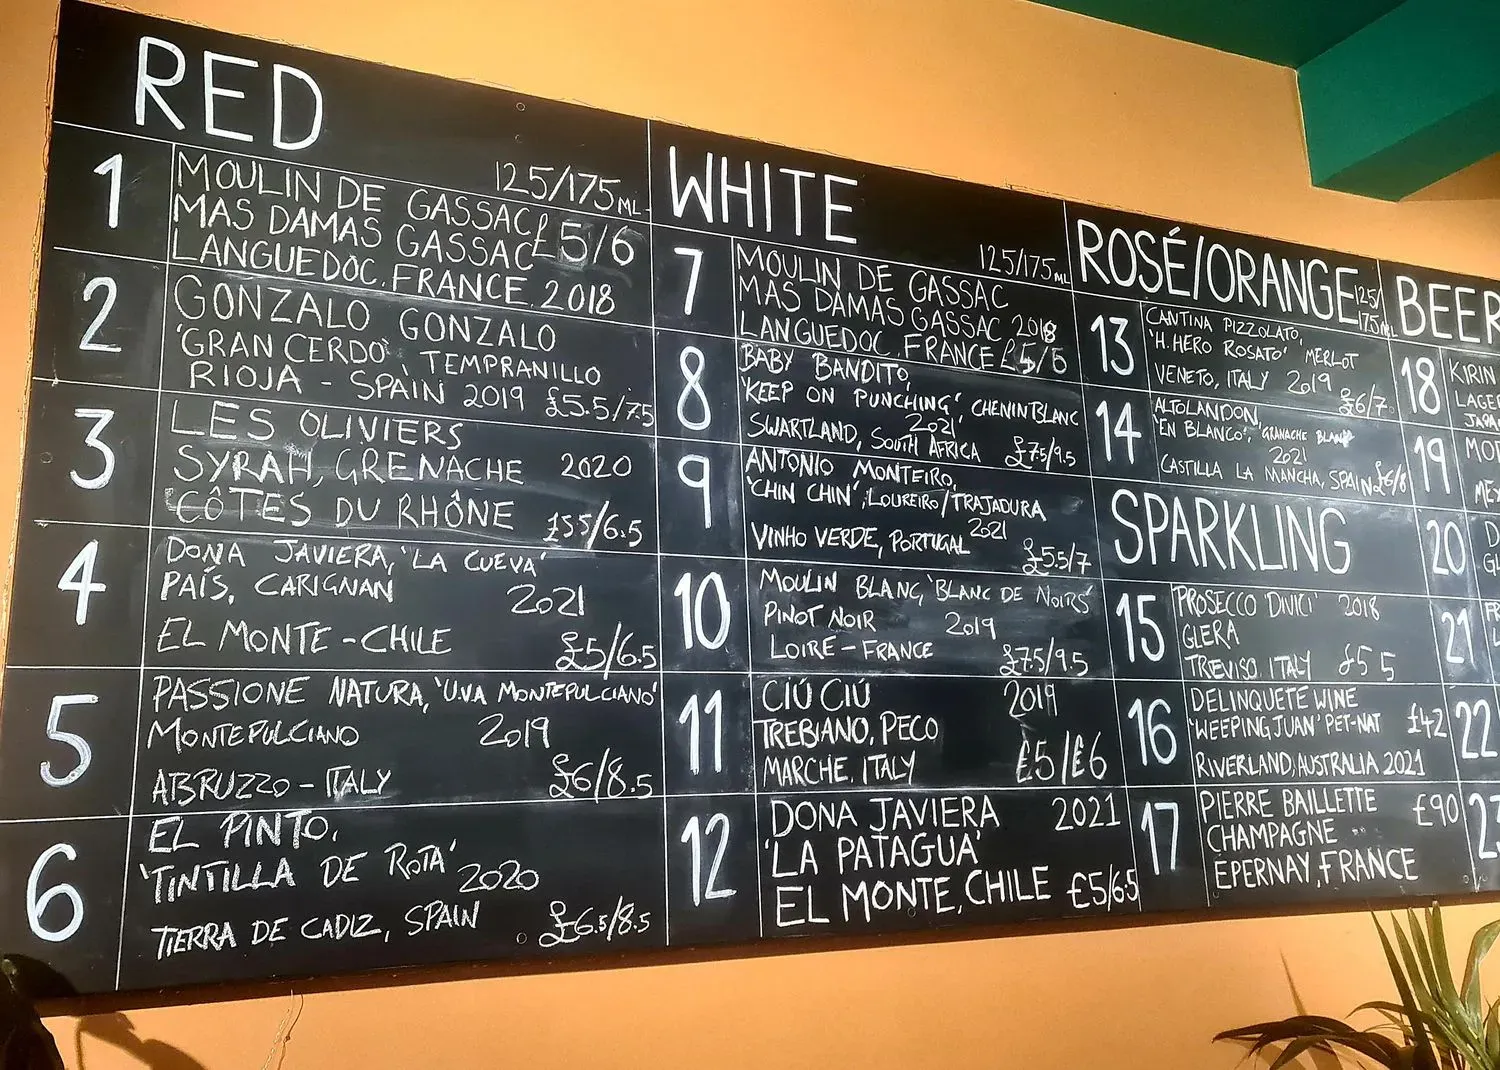 RED
125/175ML
1
MOULIN DE GASSAC
MAS DAMAS GASSAC £5/6
LANGUEDOC, FRANCE, 2018
2
GONZALO GONZALO
'GRAN CERDO' TEMPRANILLO
RIOJA - SPAIN 2019 £5.5/7.5
3
LES OLIVIERS
SYRAH, GRENACHE 2020
CÔTES DU RHÔNE £5.5/6.5
4
DONA JAVIERA, 'LA CUEVA'
PAÍS, CARIGNAN 2021
EL MONTE - CHILE £5/6.5
5
PASSIONE NATURA, 'UVA MONTEPULCIANO'
MONTEPULCIANO 2019
ABRUZZO - ITALY £6/8.5
6
EL PINTO,
'TINTILLA DE ROTA' 2020
TIERRA DE CADIZ, SPAIN £6.5/8.5
WHITE
125/175ML
7
MOULIN DE GASSAC
MAS DAMAS GASSAC 2018
LANGUEDOC, FRANCE £5/6
8
BABY BANDITO,
'KEEP ON PUNCHING', CHENIN BLANC
2021
SWARTLAND, SOUTH AFRICA £7.5/9.5
9
ANTONIO MONTEIRO,
'CHIN CHIN', LOUREIRO/TRAJADURA
2021
VINHO VERDE, PORTUGAL £5.5/7
10
MOULIN BLANC, 'BLANC DE NOIRS'
PINOT NOIR 2019
LOIRE - FRANCE £7.5/9.5
11
CIÚ CIÚ 2019
TREBIANO, PECO
MARCHE, ITALY £5/£6
12
DONA JAVIERA 2021
'LA PATAGUA'
EL MONTE, CHILE £5/6.5
ROSÉ/ORANGE 125/
175ML
13
CANTINA PIZZOLATO,
'H.HERO ROSATO' MERLOT
VENETO, ITALY 2019 £6/7
14
ALTOLANDON,
'EN BLANCO', GRANACHE BLANC
2021
CASTILLA LA MANCHA, SPAIN £6/8
SPARKLING
15
PROSECCO 'DIVICI' 2018
GLERA
TREVISO, ITALY £5 5
16
DELINQUETE WINE
'WEEPING JUAN' PET-NAT £42
RIVERLAND, AUSTRALIA 2021
17
PIERRE BAILLETTE £90
CHAMPAGNE
EPERNAY, FRANCE
BEER
18
KIRIN
LAGE
JAPA
19
MO
MEX
20
D
GL
21
22
23